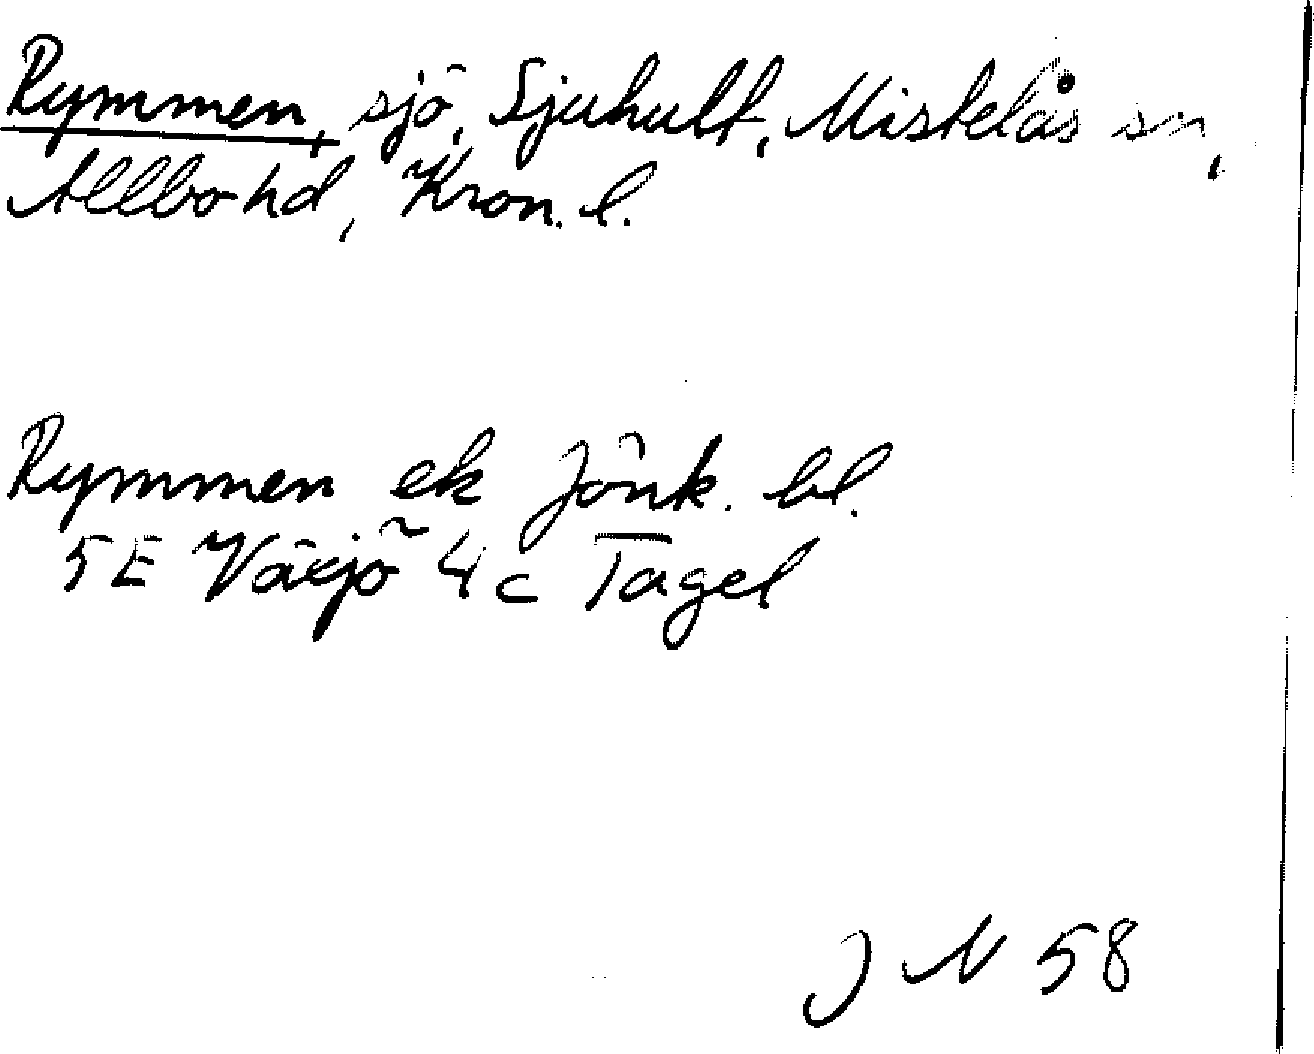 Rymmen, sjö, Sjuhult, Mistelås sn,
Allbo hd, Kron. l.
Rymmen ek Jönk. bl.
5E Växjö 4c Tagel
J N 58